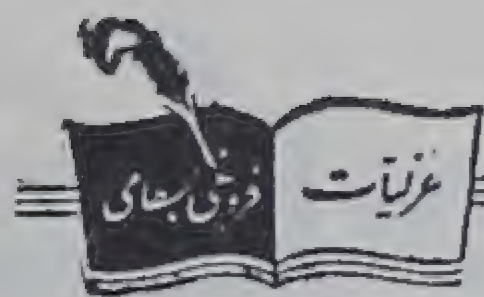 غزلیات
فروغی بسطامی